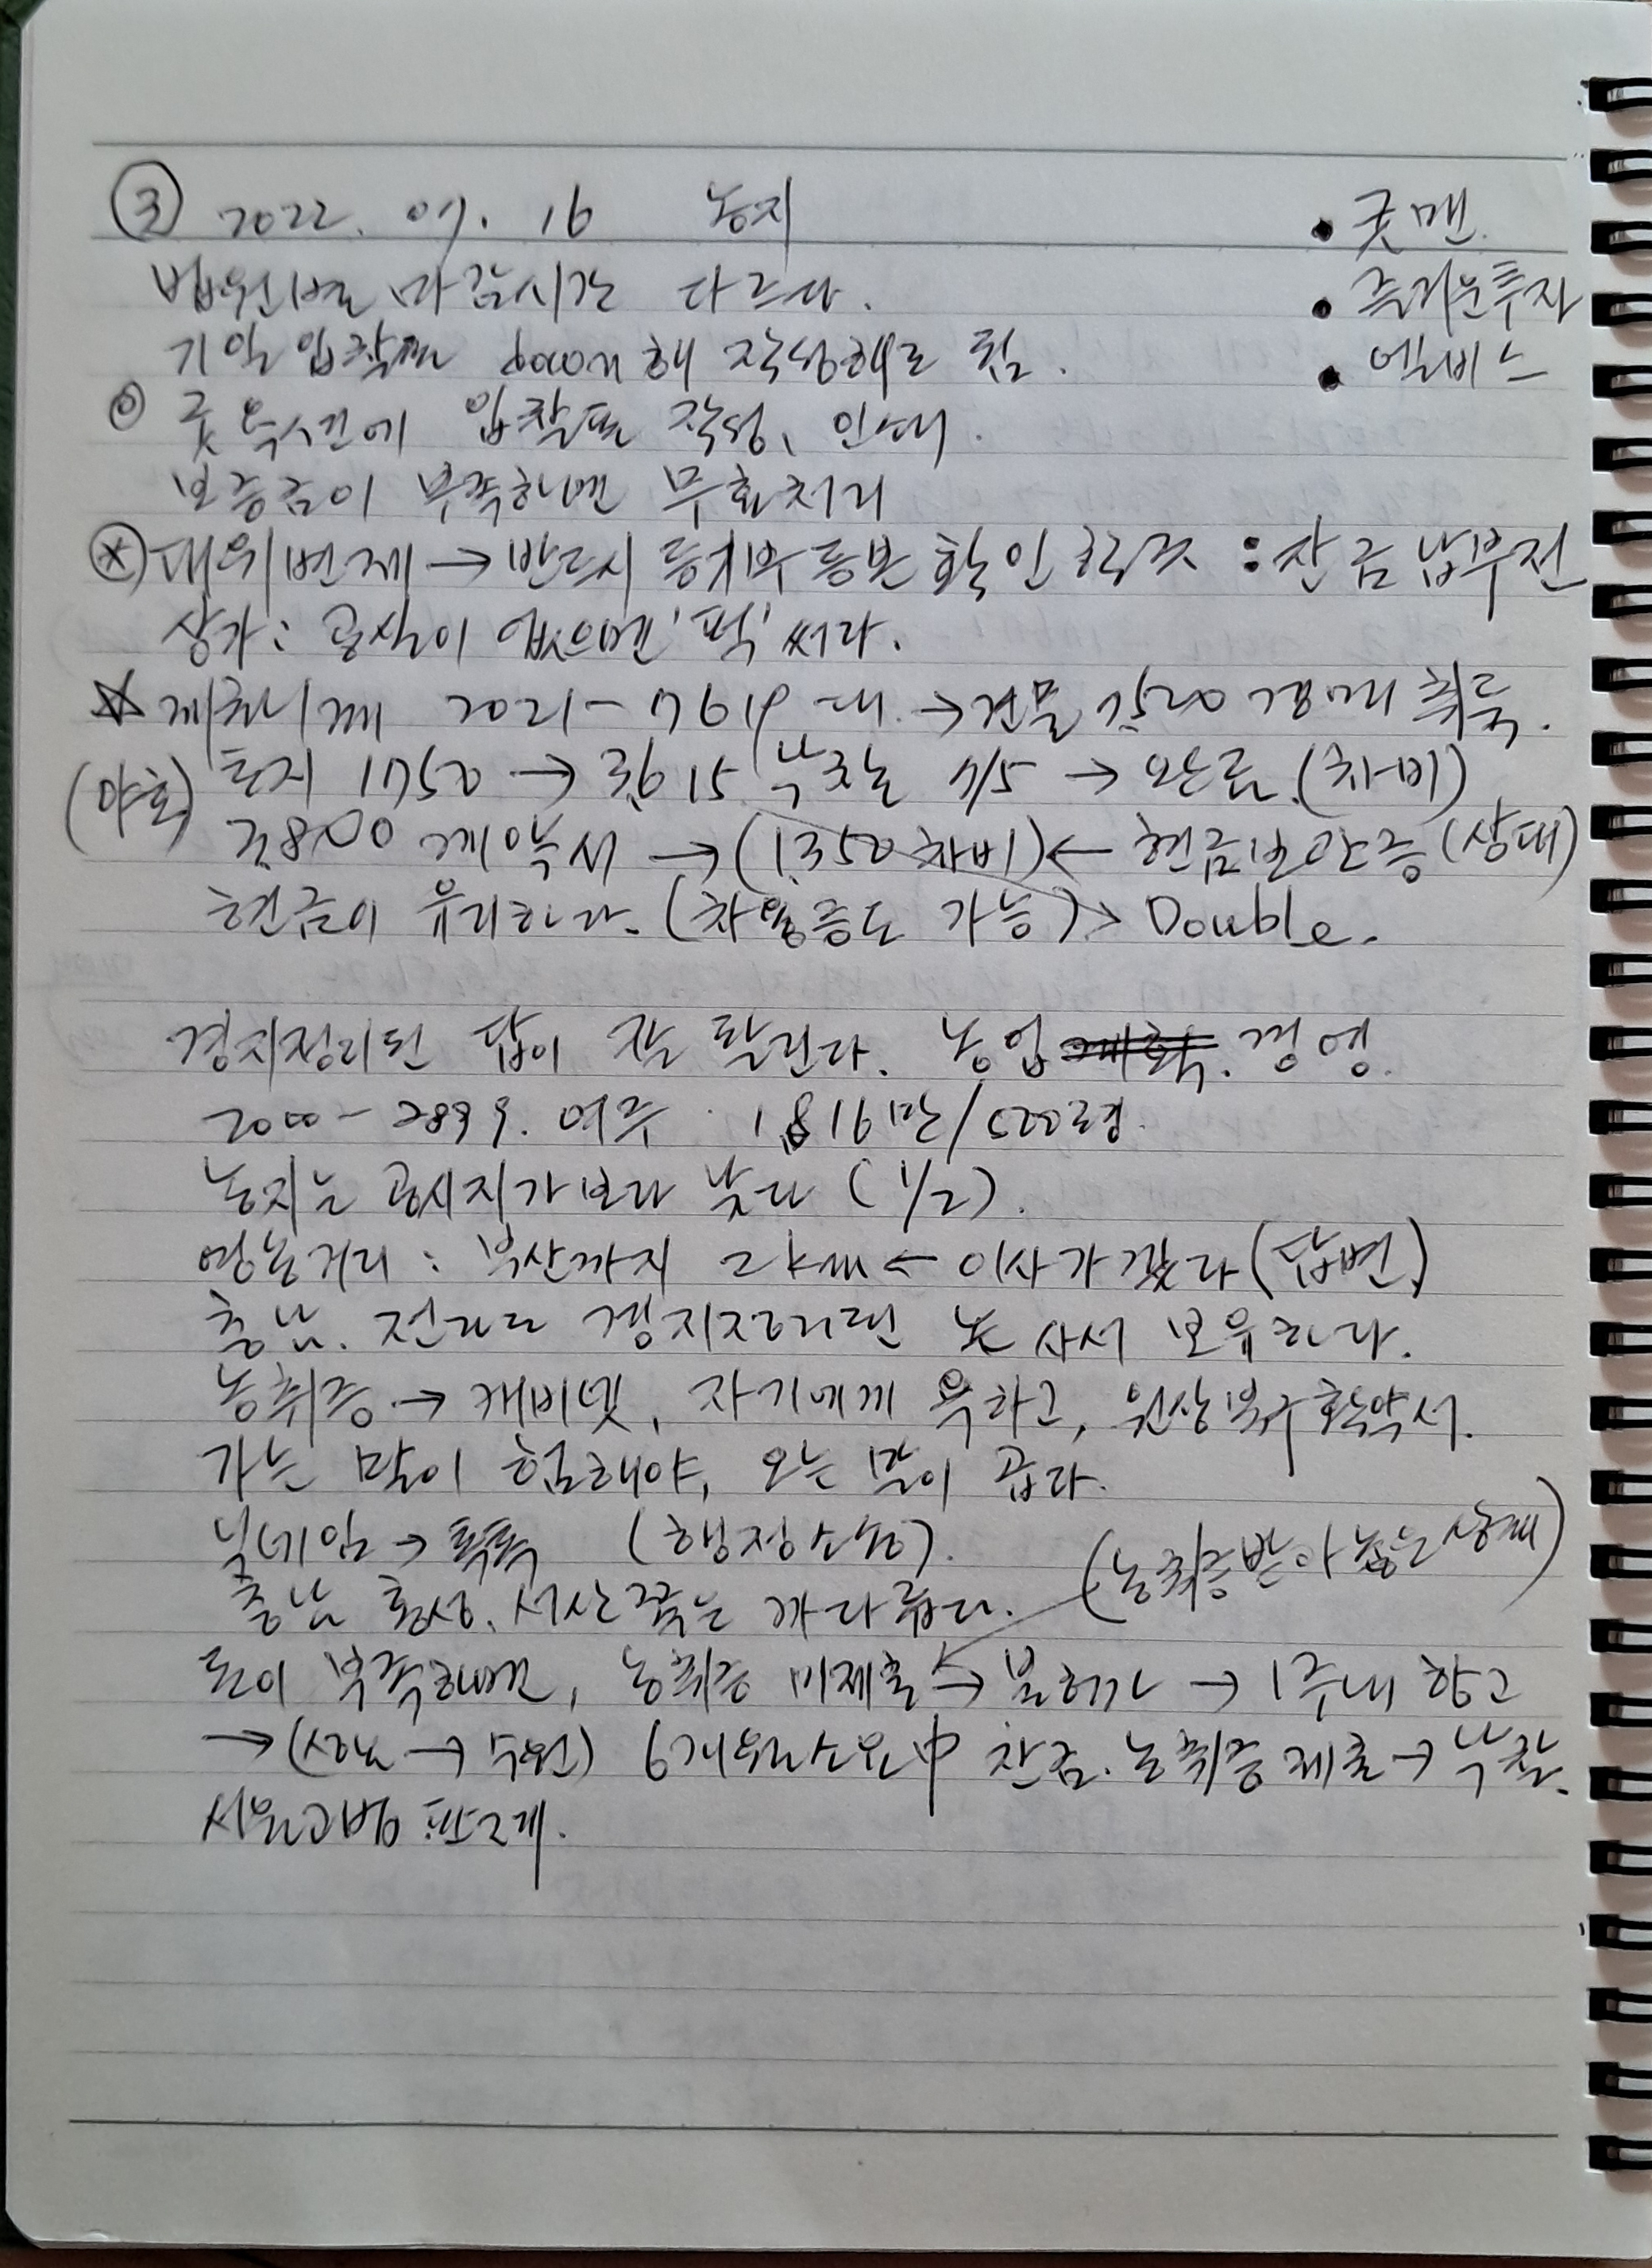 ③ 2022. 07. 16 농지
• 굿맨.
• 즐거운투자
• 엘비스
법원별 마감시간 다르다.
기일입찰표 down해 작성해도 됨.
◎ 굿옥션에 입찰표 작성, 인쇄.
보증금이 부족하면 무효처리
⊛ 대위변제 → 반드시 등기부등본 확인 하고 : 잔금납부전
상가: 공식이 없으면 '퍽' 써라.
☆ 제천시 2021-7619 → 건물 경매 취득.
(야호) 토지 1750 → 3615 낙찰 4/5 → 완료.(차비)
계약서 → (1350차비) ← 현금보관증(상대)
현금이 유리하다. (차용증도 가능) → Double.
경지정리된 답이 잘 팔린다. 농업 계획. 경영.
2000-2899. 여주 1816만/520평.
농지는 공시지가보다 낮다 (1/2).
영농거리 : 부산까지 2km ← 이사가겠다 (답변)
충남. 전라도 경지정리된 논 사서 보유하라.
농취증 → 캐비넷, 자기에게 욕하고, 원상복구확약서.
가는 말이 험해야, 오는 말이 곱다.
닉네임 → 톡톡 (행정소송).
충남 홍성. 서산쪽은 까다롭다. (농취증받아놓은상태)
돈이 부족하면, 농취증 미제출 → 불허가 → 1주내 항고
→ ( → 수원) 6개월소요中 잔금. 농취증제출 → 낙찰.
서울고법 판례.